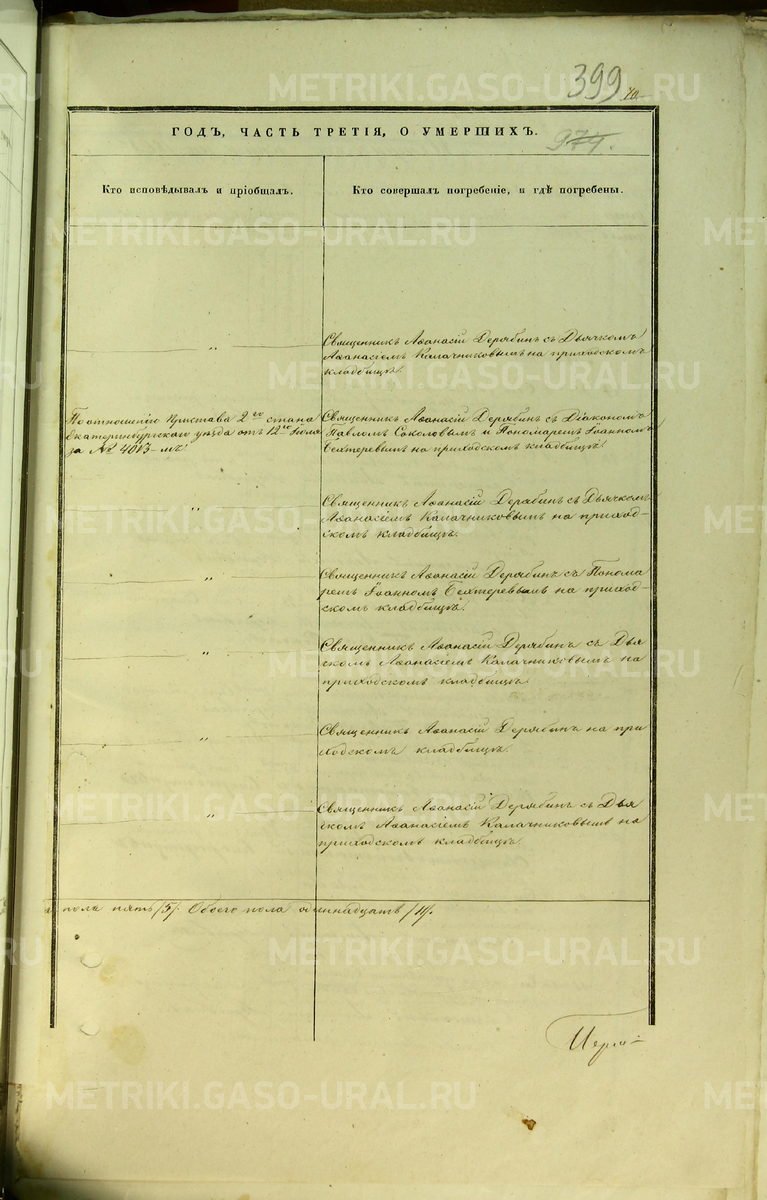 399
ГОДЪ, ЧАСТЬ ТРЕТІЯ, О УМЕРШИХЪ.
974.
Кто исповѣдывалъ и пріобщалъ.
Кто совершалъ погребеніе, и гдѣ погребены.
„
Священникъ Аѳанасій Дерябинъ съ Дьячкомъ
Аѳанасіемъ Калачниковымъ на приходскомъ
кладбищѣ.
По отношенію Пристава 2го стана
Екатеринбургскаго уѣзда отъ 12го Іюля
за № 4013-мъ
Священникъ Аѳанасій Дерябинъ съ Діакономъ
Павломъ Соколовымъ и Пономаремъ Іоанномъ
Бехтеревымъ на приходскомъ кладбищѣ.
„
Священникъ Аѳанасій Дерябинъ съ Дьячкомъ
Аѳанасіемъ Калачниковымъ на приход-
скомъ кладбищѣ.
„
Священникъ Аѳанасій Дерябинъ съ Понома
ремъ Іоанномъ Бехтеревымъ на приход-
скомъ кладбищѣ.
„
Священникъ Аѳанасій Дерябинъ съ Дья
чкомъ Аѳанасіемъ Калачниковымъ на
приходскомъ кладбищѣ.
„
Священникъ Аѳанасій Дерябинъ на при
ходскомъ кладбищѣ.
„
Священникъ Аѳанасій Дерябинъ съ Дья
чкомъ Аѳанасіемъ Калачниковымъ на
приходскомъ кладбищѣ.
пола пять /5/. Обоего пола одиннадцать /11/.
Іере-
METRIKI.GASO-URAL.RU